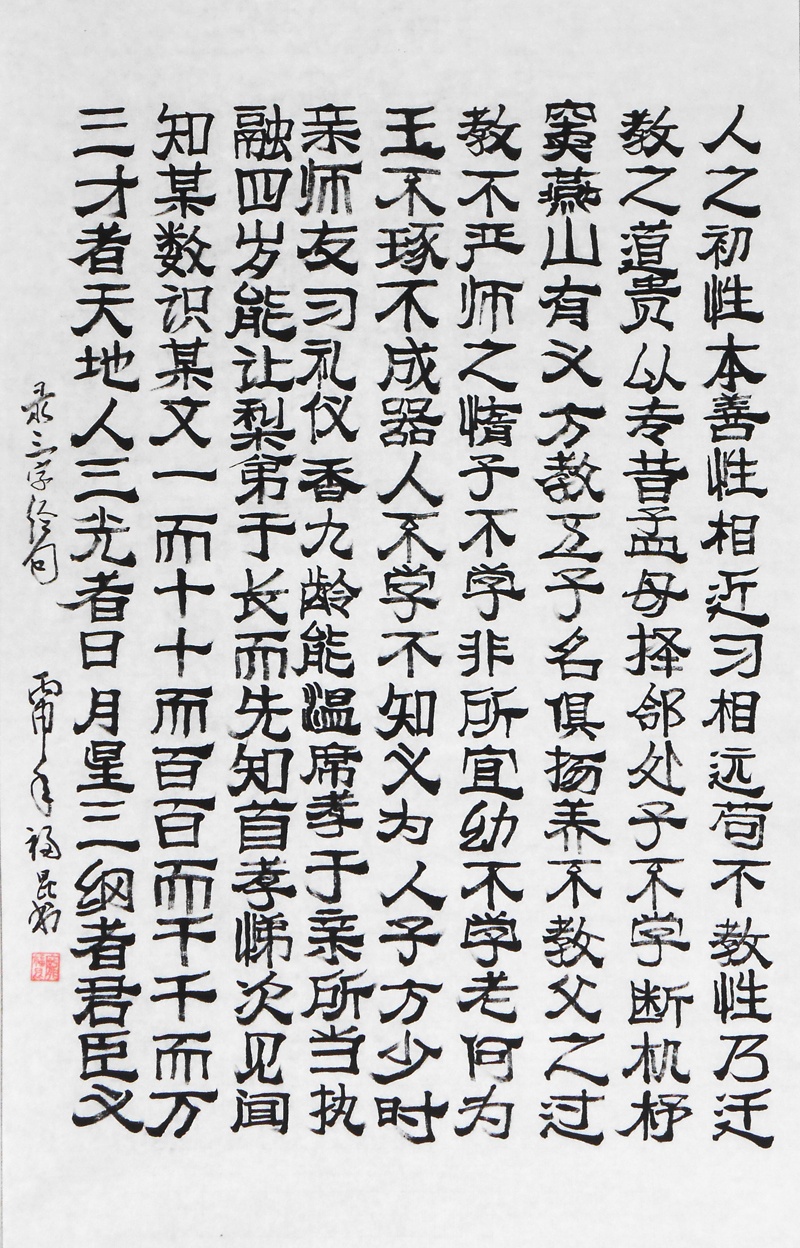 人之初性本善性相近习相远苟不教性乃迁
教之道贵以专昔孟母择邻处子不学断机杼
窦燕山有义方教五子名俱扬养不教父之过
教不严师之惰子不学非所宜幼不学老何为
玉不琢不成器人不学不知义为人子方少时
亲师友习礼仪香九龄能温席孝于亲所当执
融四岁能让梨弟于长而先知首孝悌次见闻
知某数识某文一而十十而百百而千千而万
三才者天地人三光者日月星三纲者君臣义
录三字经句 丙申年福昆书